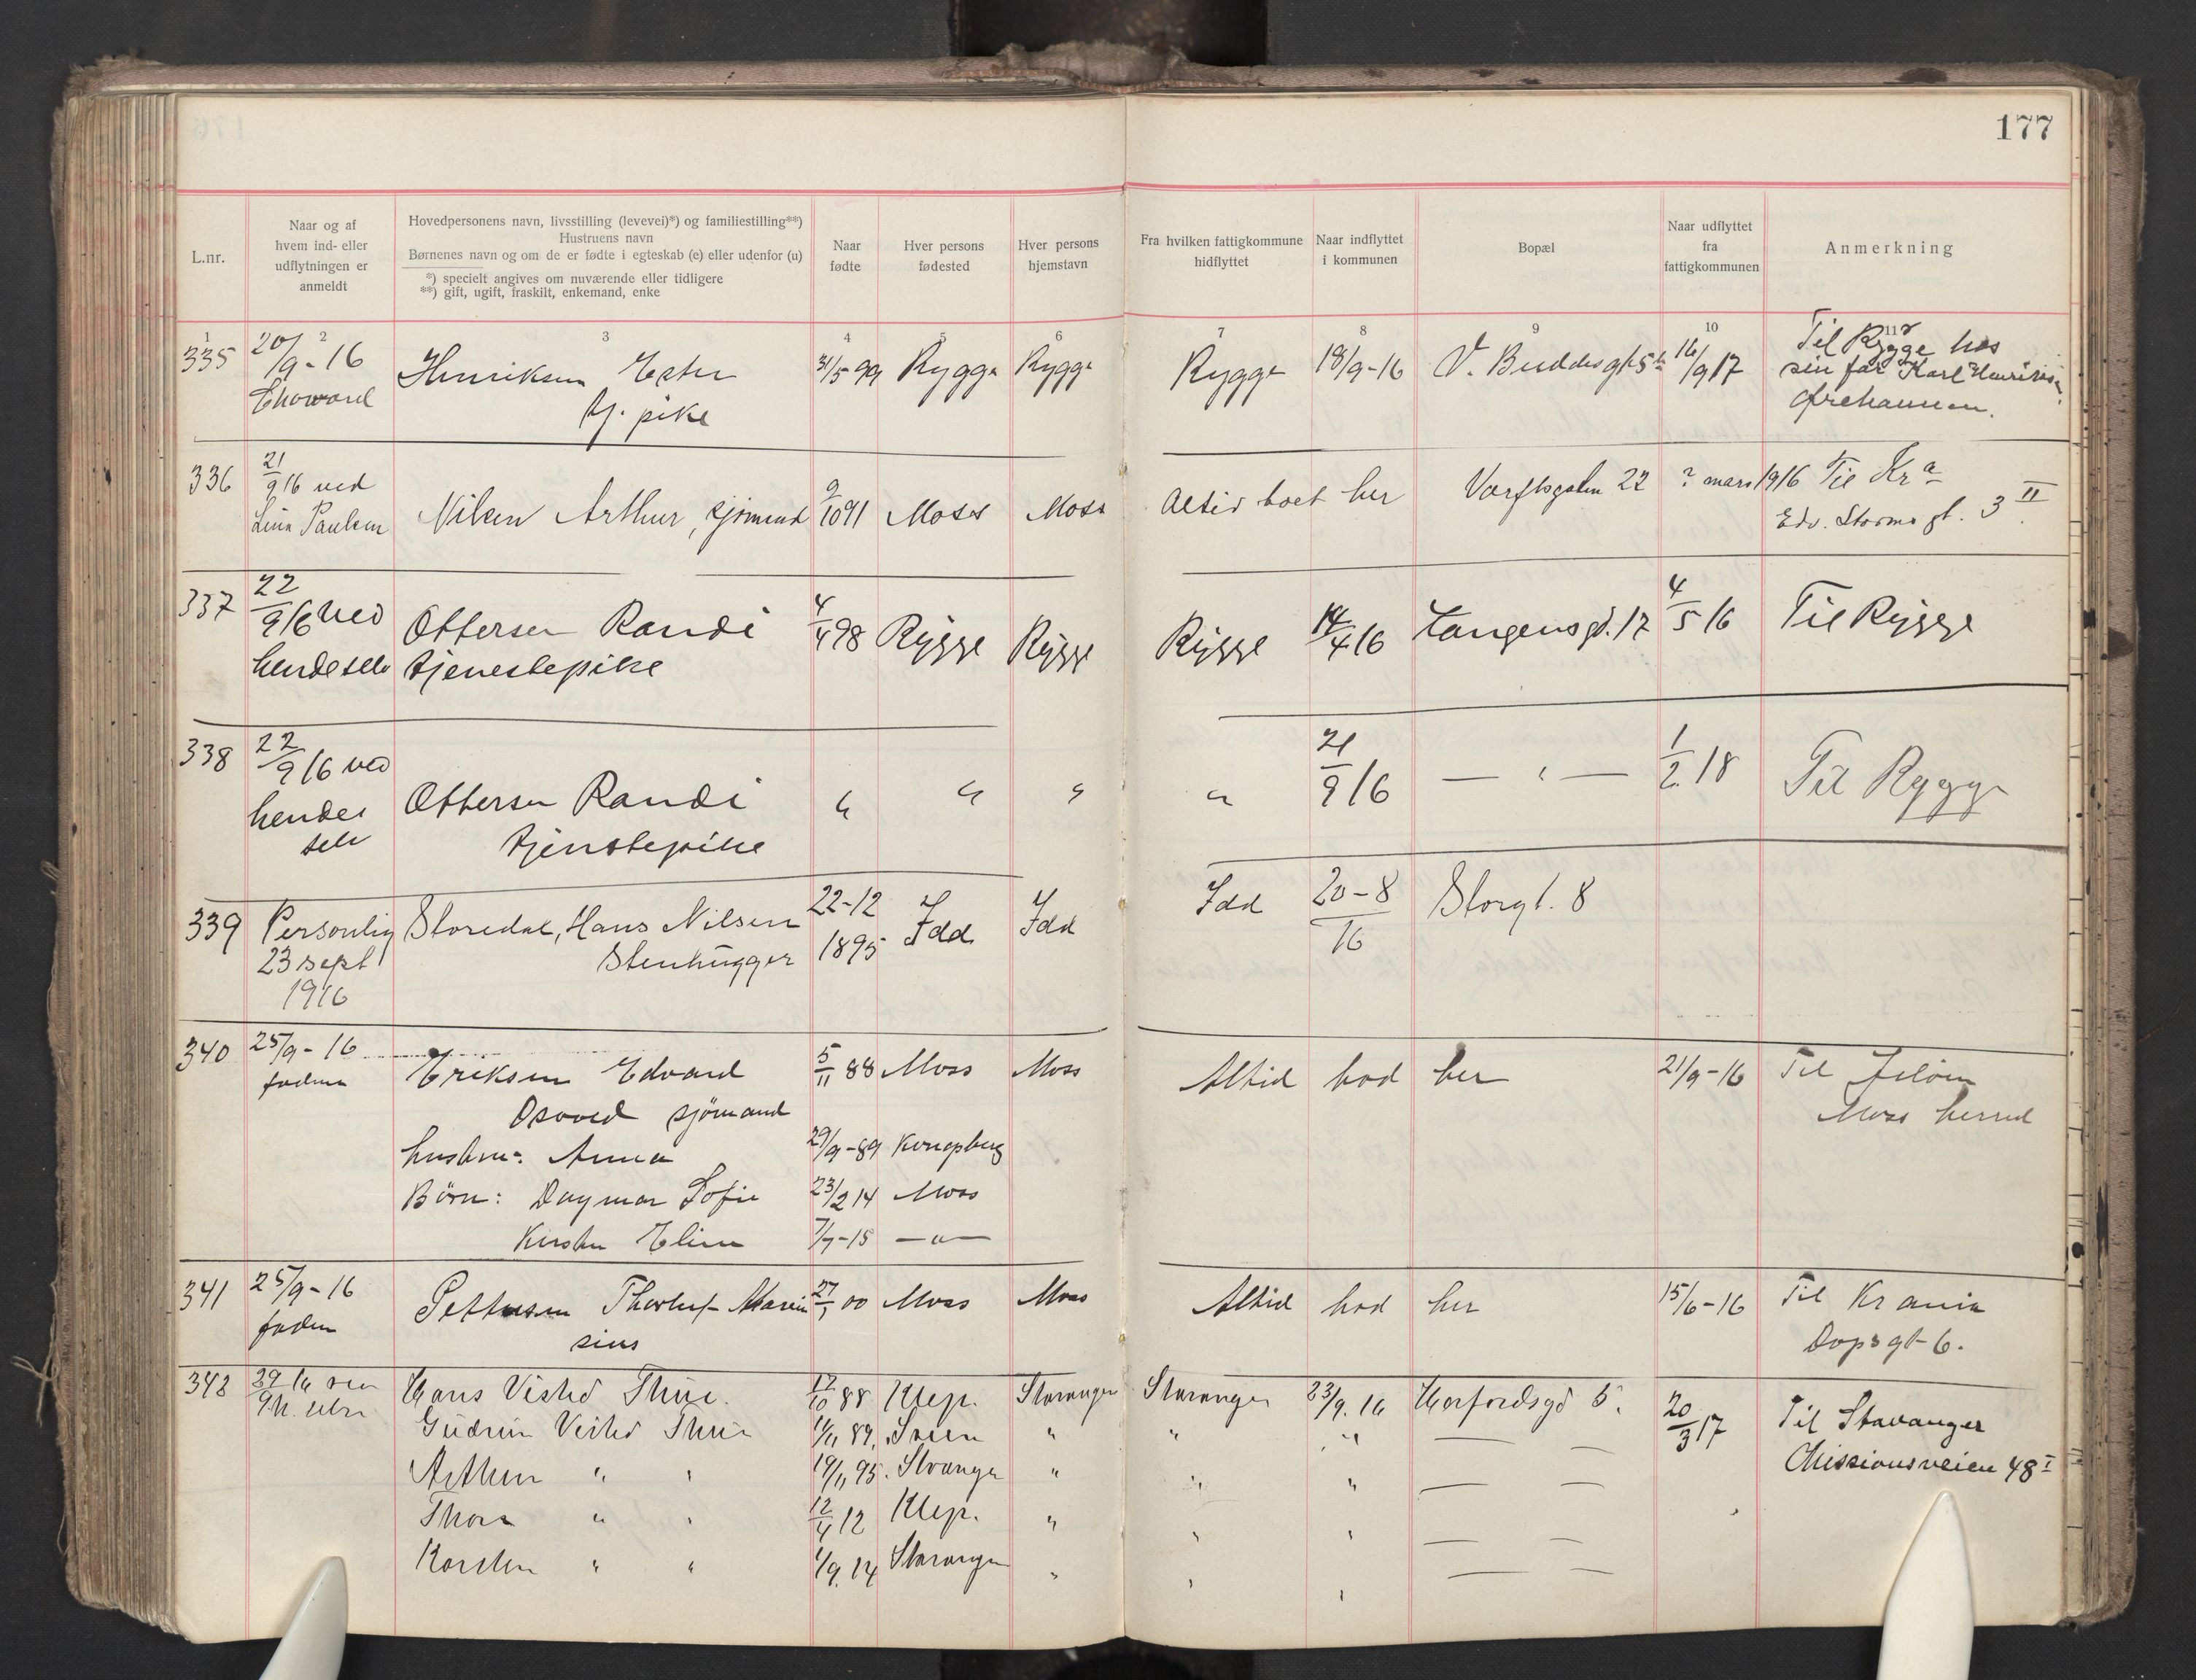 177
L.nr.
Naar og af
hvem ind- eller
udflytningen er
anmeldt
Hovedpersonens navn, livsstilling (levevei)*) og familiestilling**)
Hustruens navn
Børnenes navn og om de er fødte i egteskab (e) eller udenfor (u)
*) specielt angives om nuværende eller tidligere
**) gift, ugift, fraskilt, enkemand, enke
Naar
fødte
Hver persons
fødested
Hver persons
hjemstavn
Fra hvilken fattigkommune
hidflyttet
Naar indflyttet
i kommunen
Bopæl
Naar udflyttet
fra
fattigkommunen
Anmerkning
1 2 3 4 5 6 7 8 9 10 11
335 20/9-16 Henriksen Ester 31/5 99 Rygge Rygge Rygge 18/9-16 V. Buddesgt 5 16/9 17 Til Rygge hos
tj. pike
sin far Karl Henriksen
336 21/9 16 ved Nilsen Arthur, sjömand 9/10 91 Moss Moss Altid boet her Varftsgaten 22 ? mars 1916 Til Kra
Lina Paulsen
Edv. Storms gt. 3 II
337 22/9 16 ved Ottersen Randi 4/4 98 Rygge Rygge Rygge 14/4 16 Langensgd. 17 4/5 16 Til Rygge
hende selv tjenestepike
338 22/9 16 ved Ottersen Randi " " " " 21/9 16 — " — 1/2 18 Til Rygge
hendes
selv
tjenstepike
339 Personlig Storedal, Hans Nilsen 22-12 Idd Idd Idd 20-8 Storgt. 8
23 sept Stenhugger 1895 16
1916
340 25/9-16 Eriksen Edvard 5/11 88 Moss Moss Altid bod her 21/9-16 Til Jeløen
Osvald sjömand
Moss herred
hustru: Anna 29/9-89 Kongsberg
Børn: Dagmar Sofie 23/2 14 Moss
Kirsten Eline 7/7-15 — " —
341 25/9-16 Pettersen Thorleif Marin 27/1 00 Moss Moss Altid bod her 15/6-16 Til Krania
sius
Dops gt 6.
342 Hans Visted Thue. 12/10 88 Klep. Stavanger Stavanger 23/9. 16 20/3 17 Til Stavanger
Gudrun Visted Thue " " "
Missionsveien 48 I
Arthur " " 19/11 95. Stvanger " " "
Thora " " 12/4 12 Klep. " " "
Karsten " " 1/9. 14 Stavanger " " "